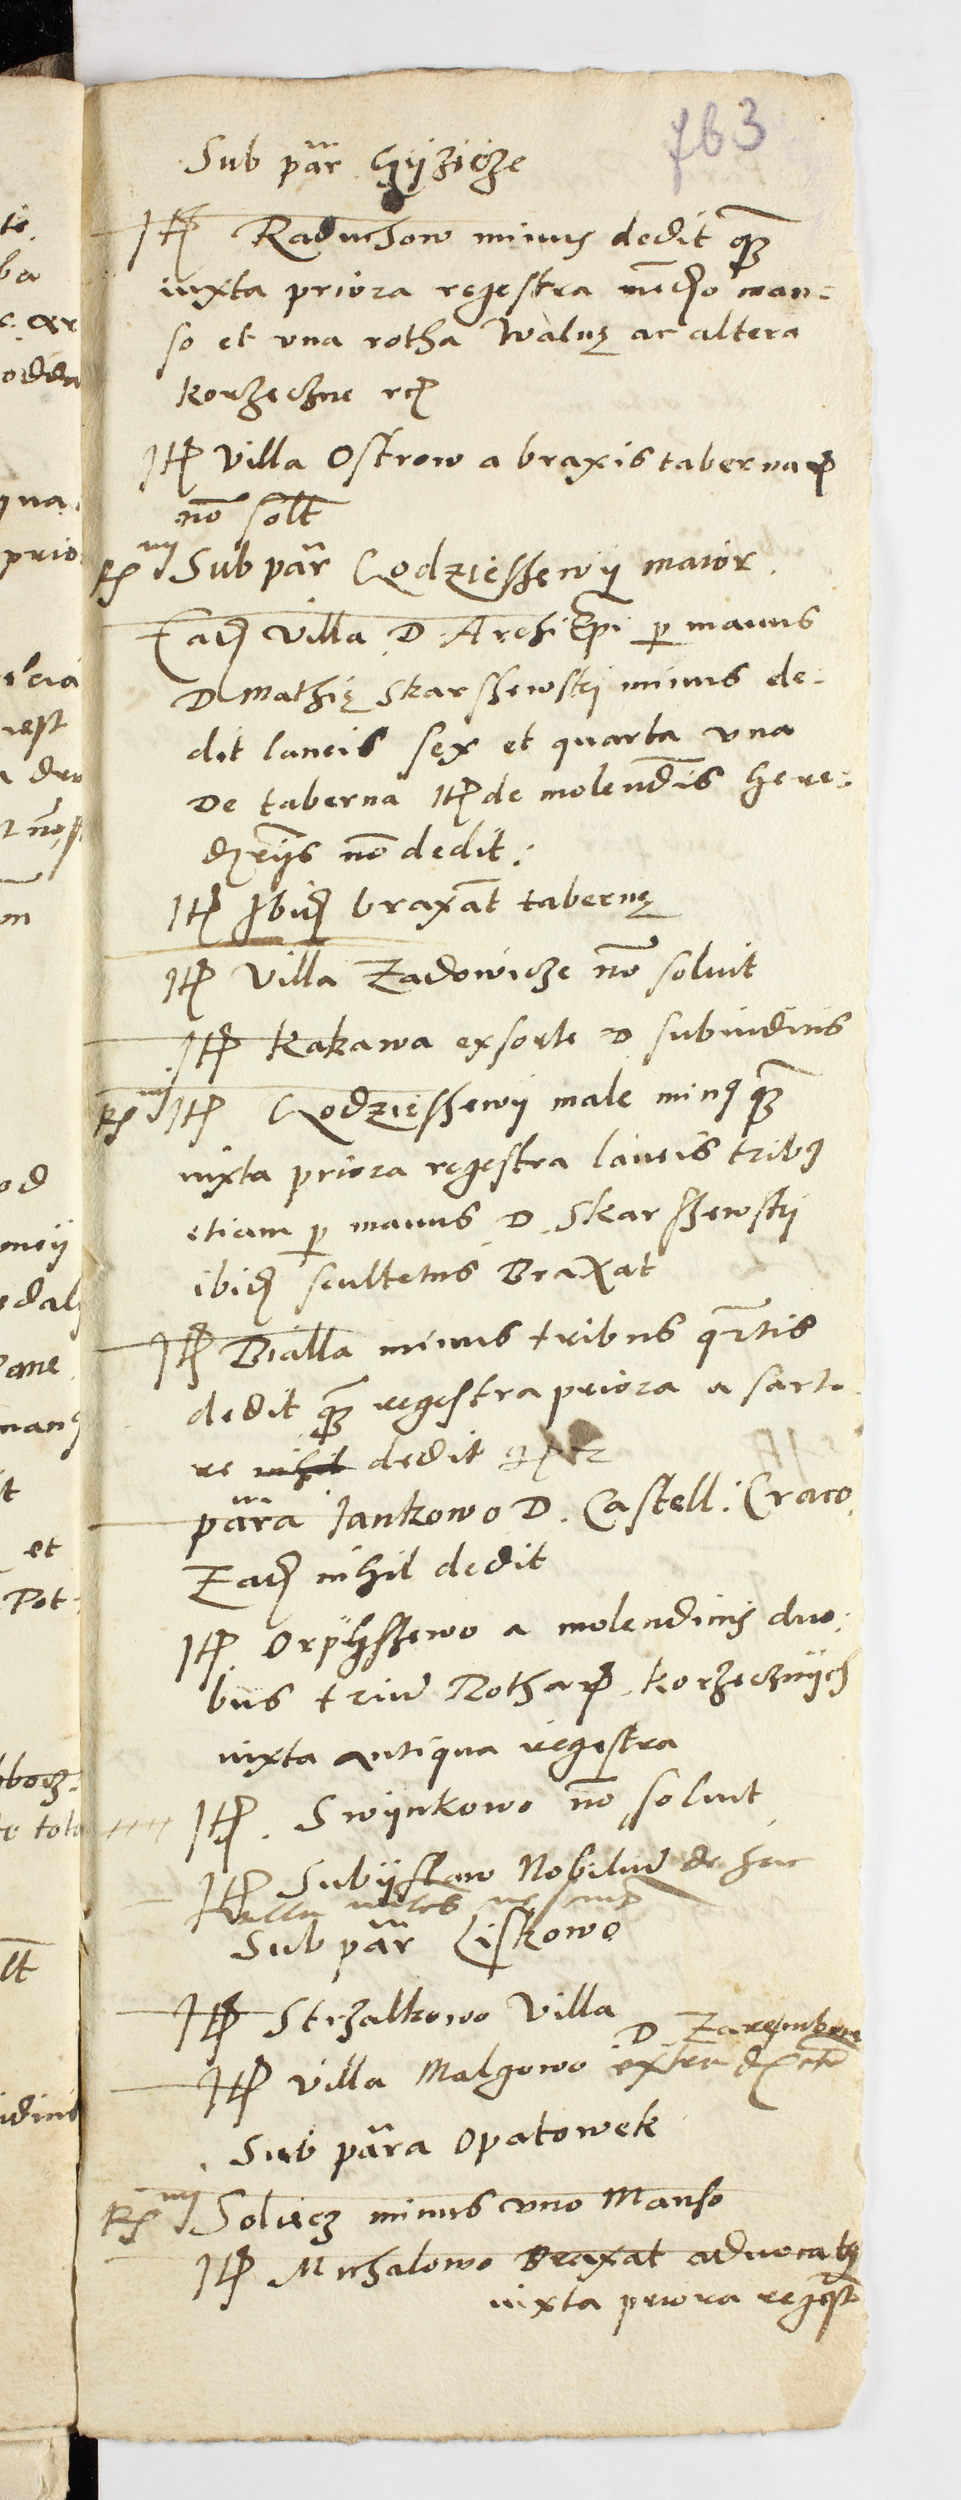 763
Sub par̄ Gÿzicze
Itꝫ Raduchow minus dedit qꝫ
iuxta priora regestra medio man:
so et vna rotha Walnę ac altera
korzeczne
Itꝫ Villa Ostrow a braxis tabernaꝝ
nō solt
Sub par̄ Godzięssewÿ maior.
Eadꝫ villa D. Archiepi p manus
D Mathię Skarssewskj minus de-
dit laneis sex et quarta vna
De taberna Itꝫ de molendis here:
nō dedit.
Itꝫ Ibidꝫ braxāt tabernę
Itꝫ Villa Zadowicze nō soluit
Itꝫ Kakawa ex sorte D subiudicis
Itꝫ Godzięssewÿ male minꝰ qꝫ
iuxta priora regestra laneis tribꝰ
etiam p manus D. Skarssewskj
ibidꝫ scultetus Braxat
Itꝫ Bialla minus tribus qrtis
dedit qꝫ regestra priora a sarto
re nihil dedit
para Jankowo D. Castell: Craco.
Eadꝫ nihil dedit
Itꝫ. Orpÿssewo a molendinis duo:
bus triū Rothaꝝ korzecznÿch
iuxta antiqua regestra
Itꝫ. Swÿnkowo nō soluit
Itꝫ Subÿslaw Nobiliū de hac
Sub par̄ Liskowo
Itꝫ Strzalkowo Villa
D. Zarembow
Itꝫ villa Malgowo extra
Sub para Opatowek
Soliecz minus vno Manso
Itꝫ Michalowo Braxat aduocatꝰ
iuxta priora regest